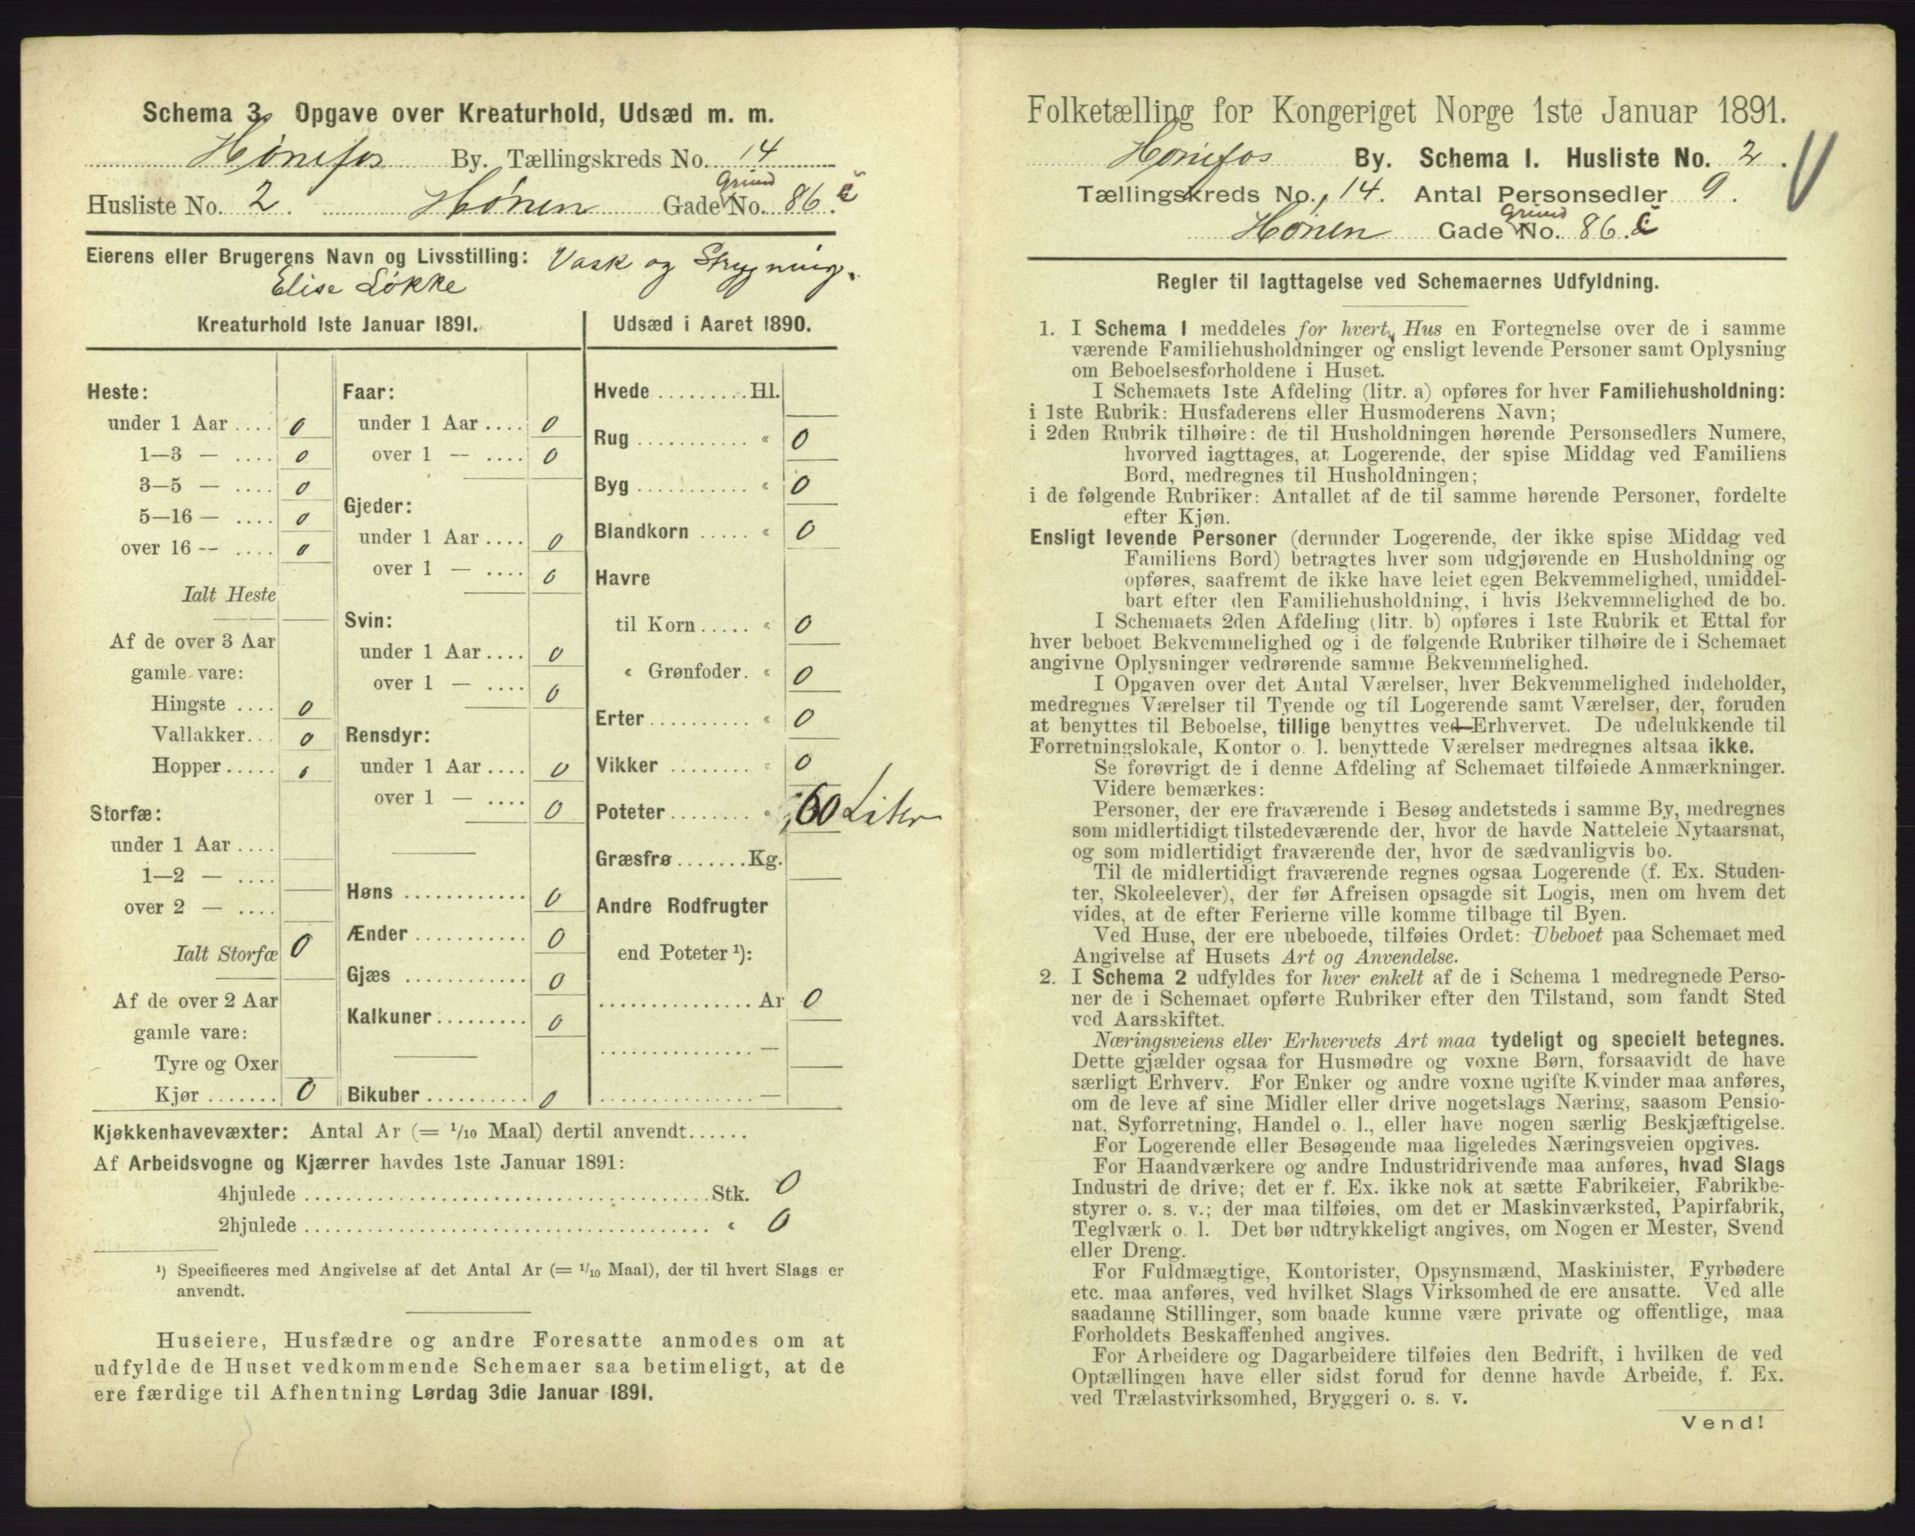 Schema 3. Opgave over Kreaturhold, Udsæd m. m.
Hønefos By. Tællingskreds No. 14
Husliste No. 2. Hønen Gade Grund No. 86 c
Eierens eller Brugerens Navn og Livsstilling: Vask og Strygning.
Elise Løkke
Kreaturhold 1ste Januar 1891.
Heste:
under 1 Aar .... 0
1—3 — .... 0
3—5 — .... 0
5—16 — .... 0
over 16 — .... 0
Ialt Heste
Af de over 3 Aar
gamle vare:
Hingste .... 0
Vallakker... 0
Hopper ..... 0
Storfæ:
under 1 Aar ....
1—2 — ....
over 2 — ....
Ialt Storfæ 0
Af de over 2 Aar
gamle vare:
Tyre og Oxer
Kjør ....... 0
Faar:
under 1 Aar .... 0
over 1 — .... 0
Gjeder:
under 1 Aar .... 0
over 1 — .... 0
Svin:
under 1 Aar .... 0
over 1 — .... 0
Rensdyr:
under 1 Aar .... 0
over 1 — .... 0
Høns ............ 0
Ænder ........... 0
Gjæs ............ 0
Kalkuner ......... 0
Bikuber .......... 0
Udsæd i Aaret 1890.
Hvede ......... Hl.
Rug ........... « 0
Byg ........... « 0
Blandkorn ..... « 0
Havre
til Korn ..... « 0
« Grønfoder. « 0
Erter .......... « 0
Vikker ........ « 0
Poteter ........ « 60 Liter
Græsfrø ....... Kg.
Andre Rodfrugter
end Poteter ¹):
............... Ar 0
............... —
............... —
Kjøkkenhavevæxter: Antal Ar (= 1/10 Maal) dertil anvendt......
Af Arbeidsvogne og Kjærrer havdes 1ste Januar 1891:
4hjulede ........................................ Stk. 0
2hjulede ........................................ « 0
¹) Specificeres med Angivelse af det Antal Ar (= 1/10 Maal), der til hvert Slags er
anvendt.
Huseiere, Husfædre og andre Foresatte anmodes om at
udfylde de Huset vedkommende Schemaer saa betimeligt, at de
ere færdige til Afhentning Lørdag 3die Januar 1891.
Folketælling for Kongeriget Norge 1ste Januar 1891.
Hønefos By. Schema 1. Husliste No. 2.
Tællingskreds No. 14. Antal Personsedler 9.
Hønen Gade Grund No. 86 c
Regler til Iagttagelse ved Schemaernes Udfyldning.
1. I Schema 1 meddeles for hvert Hus en Fortegnelse over de i samme
værende Familiehusholdninger og ensligt levende Personer samt Oplysning
om Beboelsesforholdene i Huset.
I Schemaets 1ste Afdeling (litr. a) opføres for hver Familiehusholdning:
i 1ste Rubrik: Husfaderens eller Husmoderens Navn;
i 2den Rubrik tilhøire: de til Husholdningen hørende Personsedlers Numere,
hvorved iagttages, at Logerende, der spise Middag ved Familiens
Bord, medregnes til Husholdningen;
i de følgende Rubriker: Antallet af de til samme hørende Personer, fordelte
efter Kjøn.
Ensligt levende Personer (derunder Logerende, der ikke spise Middag ved
Familiens Bord) betragtes hver som udgjørende en Husholdning og
opføres, saafremt de ikke have leiet egen Bekvemmelighed, umiddel-
bart efter den Familiehusholdning, i hvis Bekvemmelighed de bo.
I Schemaets 2den Afdeling (litr. b) opføres i 1ste Rubrik et Ettal for
hver beboet Bekvemmelighed og i de følgende Rubriker tilhøire de i Schemaet
angivne Oplysninger vedrørende samme Bekvemmelighed.
I Opgaven over det Antal Værelser, hver Bekvemmelighed indeholder,
medregnes Værelser til Tyende og til Logerende samt Værelser, der, foruden
at benyttes til Beboelse, tillige benyttes ved Erhvervet. De udelukkende til
Forretningslokale, Kontor o. l. benyttede Værelser medregnes altsaa ikke.
Se forøvrigt de i denne Afdeling af Schemaet tilføiede Anmærkninger.
Videre bemærkes:
Personer, der ere fraværende i Besøg andetsteds i samme By, medregnes
som midlertidigt tilstedeværende der, hvor de havde Natteleie Nytaarsnat,
og som midlertidigt fraværende der, hvor de sædvanligvis bo.
Til de midlertidigt fraværende regnes ogsaa Logerende (f. Ex. Studen-
ter, Skoleelever), der før Afreisen opsagde sit Logis, men om hvem det
vides, at de efter Ferierne ville komme tilbage til Byen.
Ved Huse, der ere ubeboede, tilføies Ordet: Ubeboet paa Schemaet med
Angivelse af Husets Art og Anvendelse.
2. I Schema 2 udfyldes for hver enkelt af de i Schema 1 medregnede Perso-
ner de i Schemaet opførte Rubriker efter den Tilstand, som fandt Sted
ved Aarsskiftet.
Næringsveiens eller Erhvervets Art maa tydeligt og specielt betegnes.
Dette gjælder ogsaa for Husmødre og voxne Børn, forsaavidt de have
særligt Erhverv. For Enker og andre voxne ugifte Kvinder maa anføres,
om de leve af sine Midler eller drive nogetslags Næring, saasom Pensio-
nat, Syforretning, Handel o. l., eller have nogen særlig Beskjæftigelse.
For Logerende eller Besøgende maa ligeledes Næringsveien opgives.
For Haandværkere og andre Industridrivende maa anføres, hvad Slags
Industri de drive; det er f. Ex. ikke nok at sætte Fabrikeier, Fabrikbe-
styrer o. s. v.; der maa tilføies, om det er Maskinværksted, Papirfabrik,
Teglværk o. l. Det bør udtrykkeligt angives, om Nogen er Mester, Svend
eller Dreng.
For Fuldmægtige, Kontorister, Opsynsmænd, Maskinister, Fyrbødere
etc. maa anføres, ved hvilket Slags Virksomhed de ere ansatte. Ved alle
saadanne Stillinger, som baade kunne være private og offentlige, maa
Forholdets Beskaffenhed angives.
For Arbeidere og Dagarbeidere tilføies den Bedrift, i hvilken de ved
Optællingen have eller sidst forud for denne havde Arbeide, f. Ex.
ved Trælastvirksomhed, Bryggeri o. s. v.
Vend!